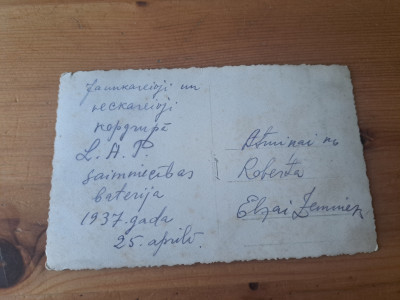 Jaunkareivji un
veckareivji
kopgrupē
L. A. P.
saimniecības
baterija
1937. gada
25. aprīlī.
Atminai no
Roberta
Elzai Zemniek